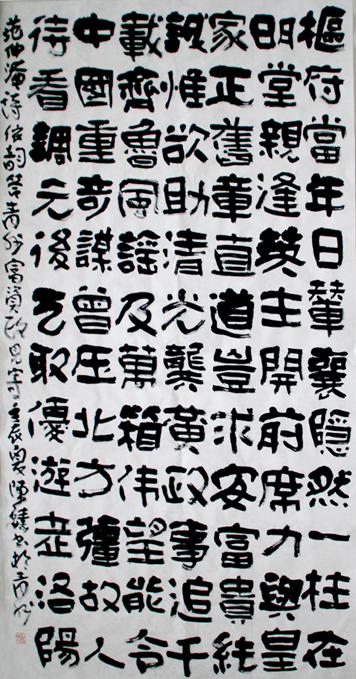 樞府當年日贊襄隱然一柱在
明堂親逢英主開前席力與皇
家正舊章直道豈求安富貴純
誠惟欲助清光龔黃政事追千
載齊魯風謠及萬箱偉望能令
中國重奇謀曾壓北方彊故人
待看調元後乞取優游老洛陽
范仲淹詩依韻答青州富資政見寄壬辰夏陳書於青州